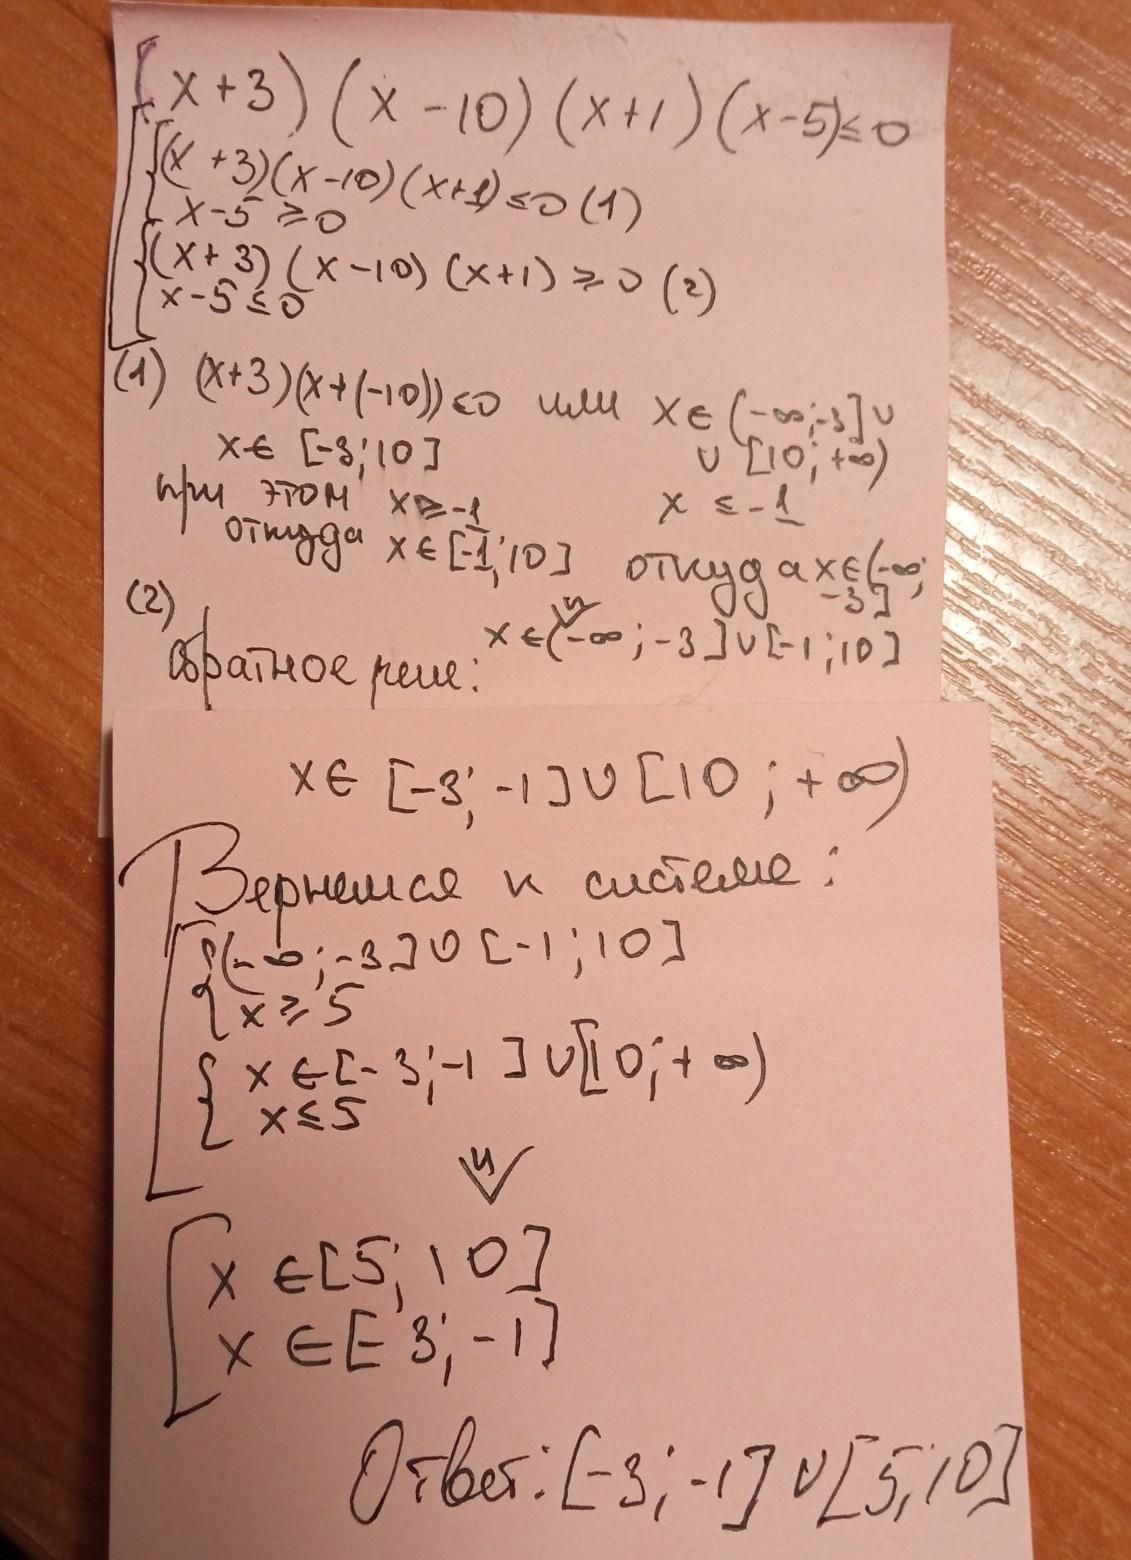 (x+3)(x-10)(x+1)(x-5)≤0
(x+3)(x-10)(x+1)≤0 (1)
x-5≥0
(x+3)(x-10)(x+1)≥0 (2)
x-5≤0
(1) (x+3)(x+(-10))≤0 или x∈(-∞;-3]∪
x∈[-3;10] ∪[10;+∞)
при этом x≥-1 x≤-1
откуда x∈[-1;10] откуда x∈(-∞;
-3]
(2) x∈(-∞;-3]∪[-1;10]
Обратное реше:
x∈[-3;-1]∪[10;+∞)
Вернемся к системе:
(-∞;-3]∪[-1;10]
x≥5
x∈[-3;-1]∪[10;+∞)
x≤5
x∈[5;10]
x∈[-3;-1]
Ответ: [-3;-1]∪[5;10]